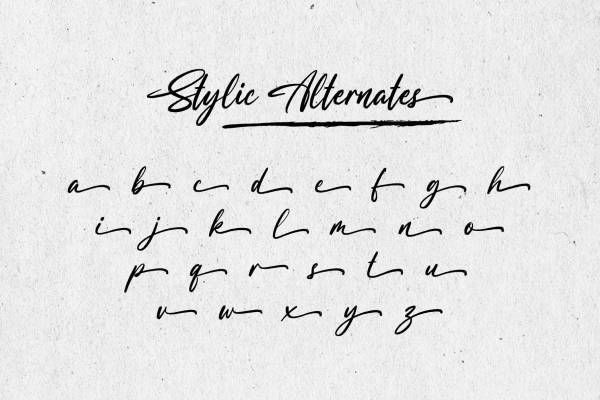 Stylic Alternates
a b c d e f g h
i j k l m n o
p q r s t u
v w x y z